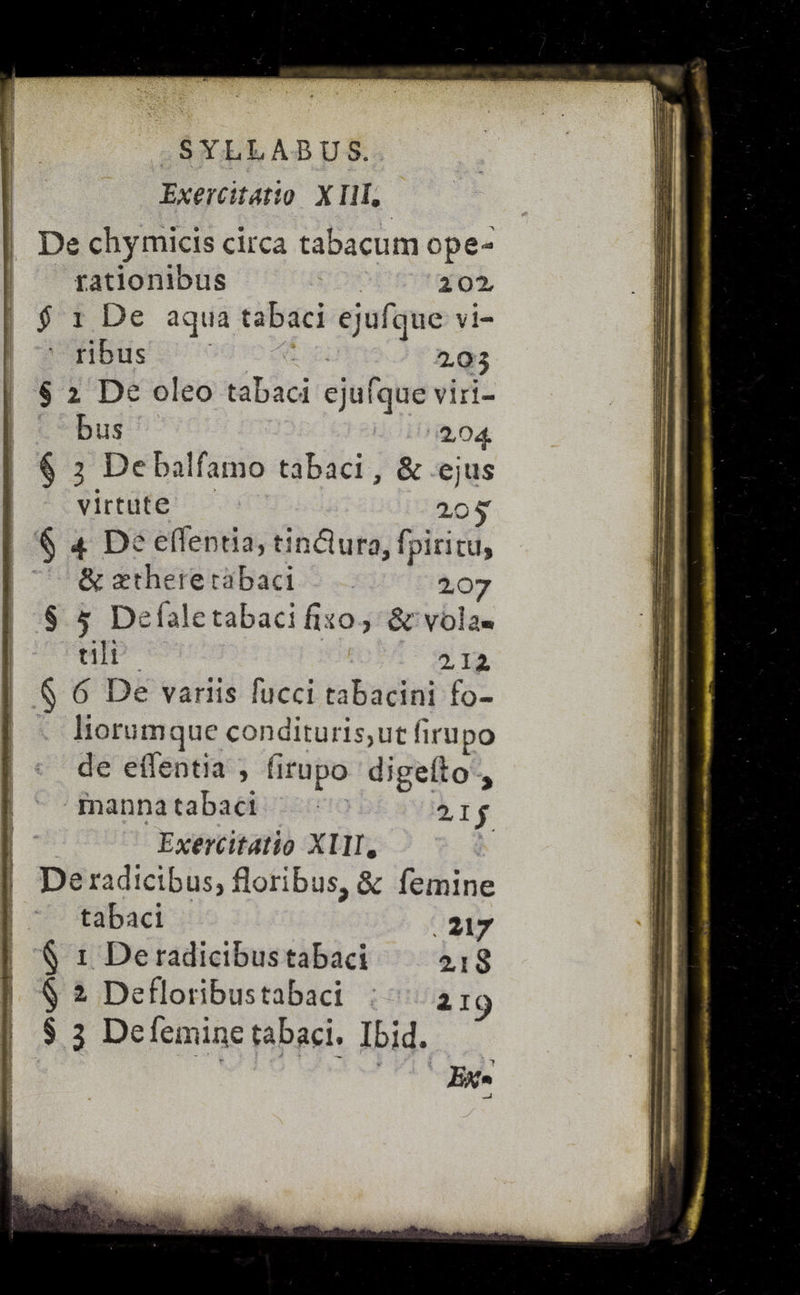 SYLLABUS.
Exercitatio XIII.
De chymicis circa tabacum ope-
rationibus 202
§ 1 De aqua tabaci ejuſque vi-
ribus 203
§ 2 De oleo tabaci ejuſque viri-
bus 204
§ 3 De balſamo tabaci, & ejus
virtute 205
§ 4 De eſſentia, tinctura, ſpiritu,
& æthere tabaci 207
§ 5 De ſale tabaci fixo, & vola-
tili 212
§ 6 De variis ſucci tabacini fo-
liorumque condituris, ut ſirupo
de eſſentia, ſirupo digeſto,
manna tabaci 215
Exercitatio XIII.
De radicibus, floribus, & ſemine
tabaci 217
§ 1 De radicibus tabaci 218
§ 2 De floribus tabaci 219
§ 3 De ſemine tabaci. Ibid.
Ex-